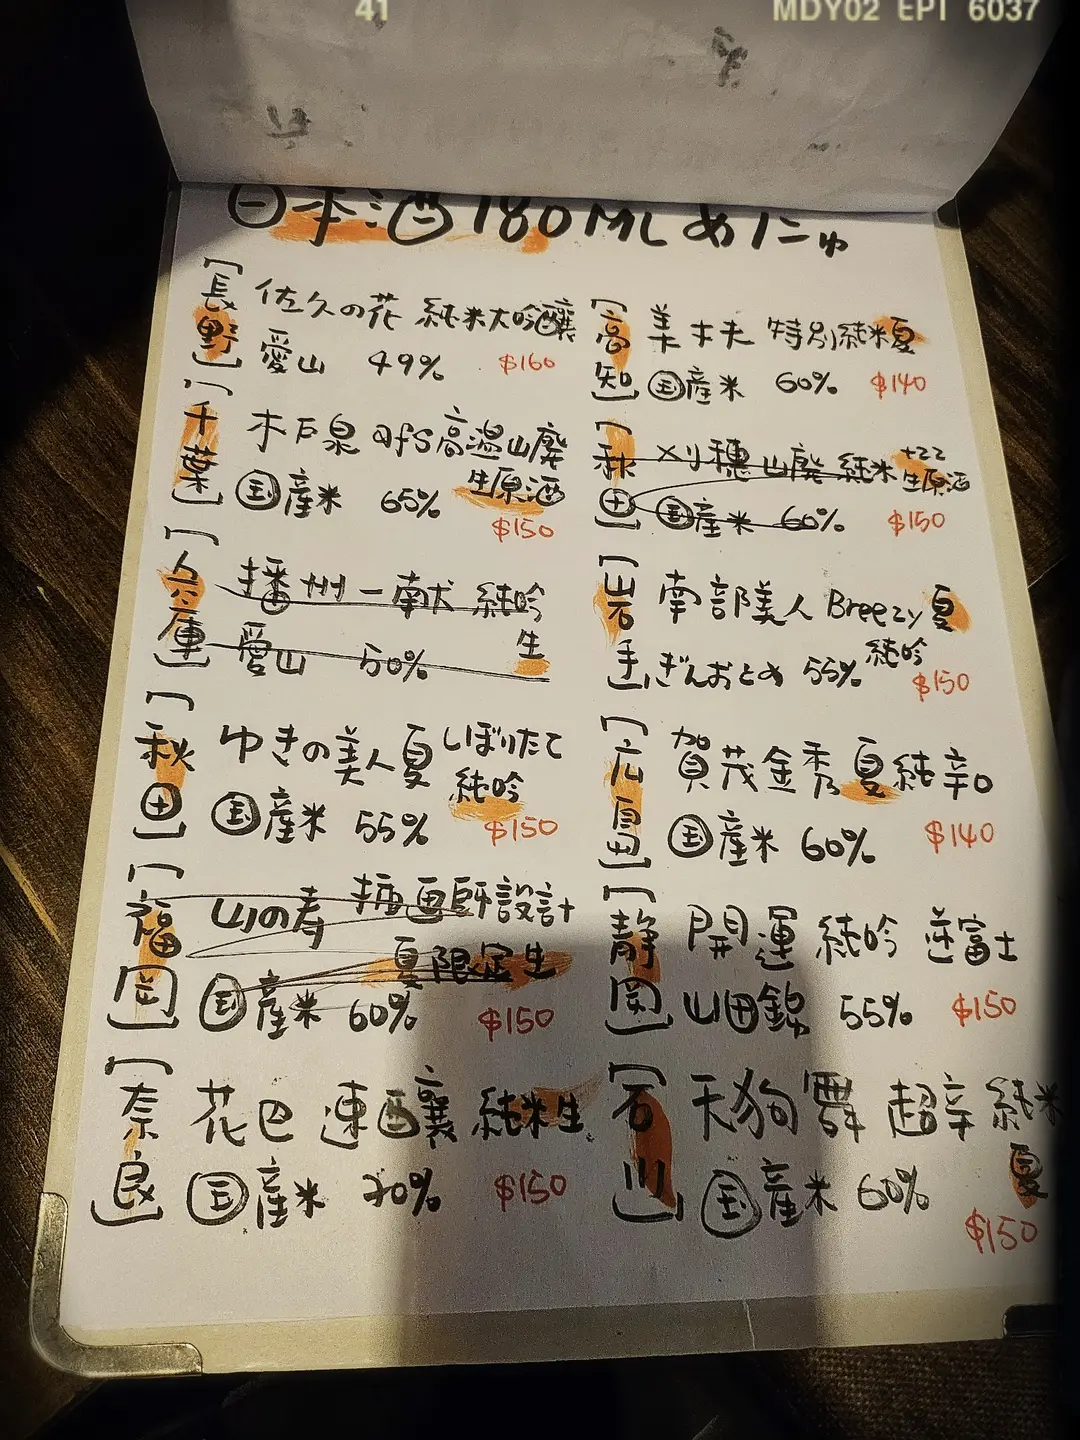 41
MDY02 EPI 6037
日本酒180ML めにゅ
【長野】 佐久の花 純米大吟醸
愛山 49% $160
【千葉】 木戸泉 afs高温山廃
生原酒
国産米 65%
$150
【兵庫】 播州一献 純吟
生
愛山 50%
【秋田】 ゆきの美人夏しぼりたて
純吟
国産米 55% $150
【福岡】 山の寿 挿画師設計
夏限定生
国産米 60% $150
【奈良】 花巴 速醸 純米生
国産米 70% $150
【高知】 美丈夫 特別純米夏
国産米 60% $140
【秋田】 刈穂 山廃 純米 +22
生原酒
国産米 60% $150
【岩手】 南部美人 Breezy夏
純吟
ぎんおとめ 55% $150
【広島】 賀茂金秀 夏純辛口
国産米 60% $140
【静岡】 開運 純吟 逆富士
山田錦 55% $150
【石川】 天狗舞 超辛 純米
夏
国産米 60%
$150